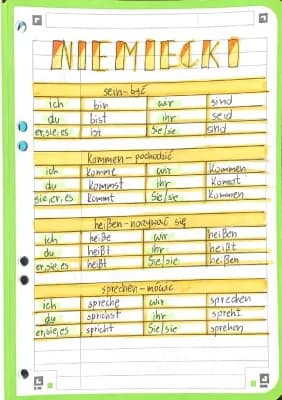 NIEMIECKI
sein-być
ich bin wir sind
du bist ihr seid
er,sie,es ist Sie/sie sind
kommen-pochodzić
ich komme wir kommen
du kommst ihr kommt
sie,er,es kommt Sie/sie kommen
heißen-nazywać się
ich heiße wir heißen
du heißt ihr heißt
er,sie,es heißt Sie/sie heißen
sprechen-mówić
ich spreche wir sprechen
du sprichst ihr spreht
er,sie,es spricht Sie/sie sprehen